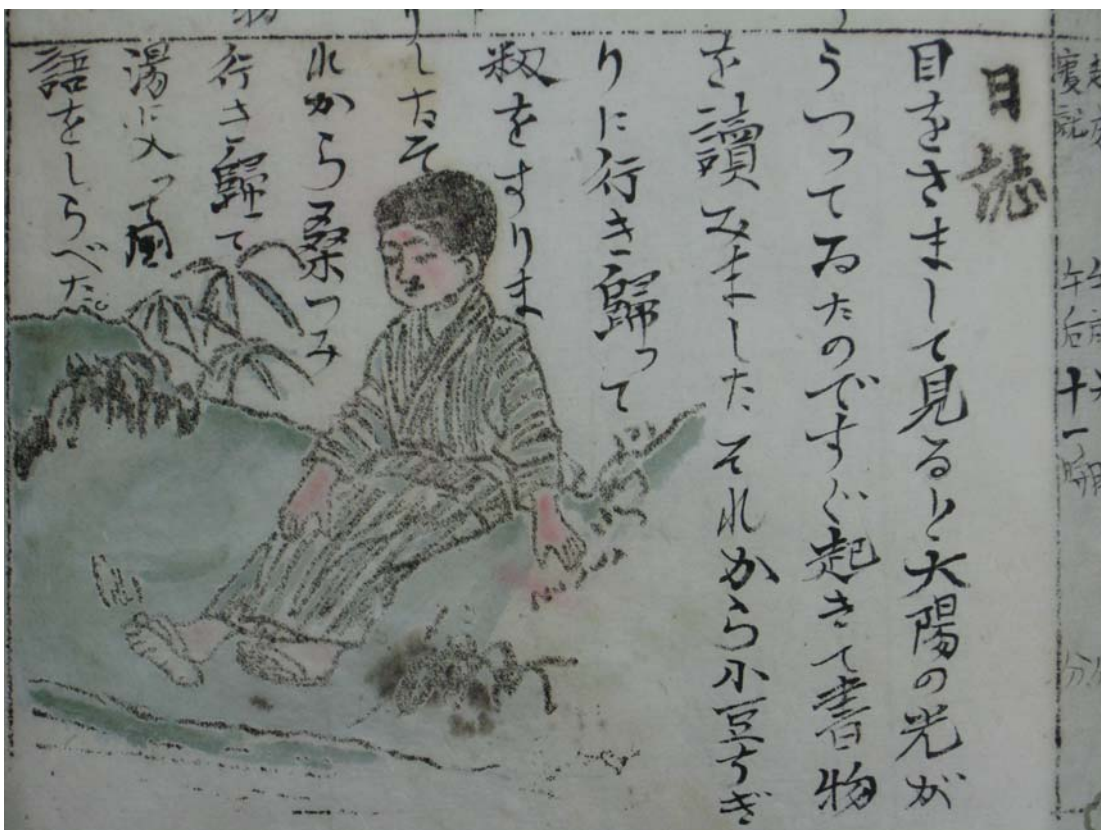 日誌
目をさまして見ると大陽の光が
うつってゐたのですぐ起きて書物
を讀みましたそれから小豆ちぎ
りに行き歸って
籾をすりま
したそ
れから桑つみ
行き歸て
湯に入って國
語をしらべた。
午前
午后十一時
分